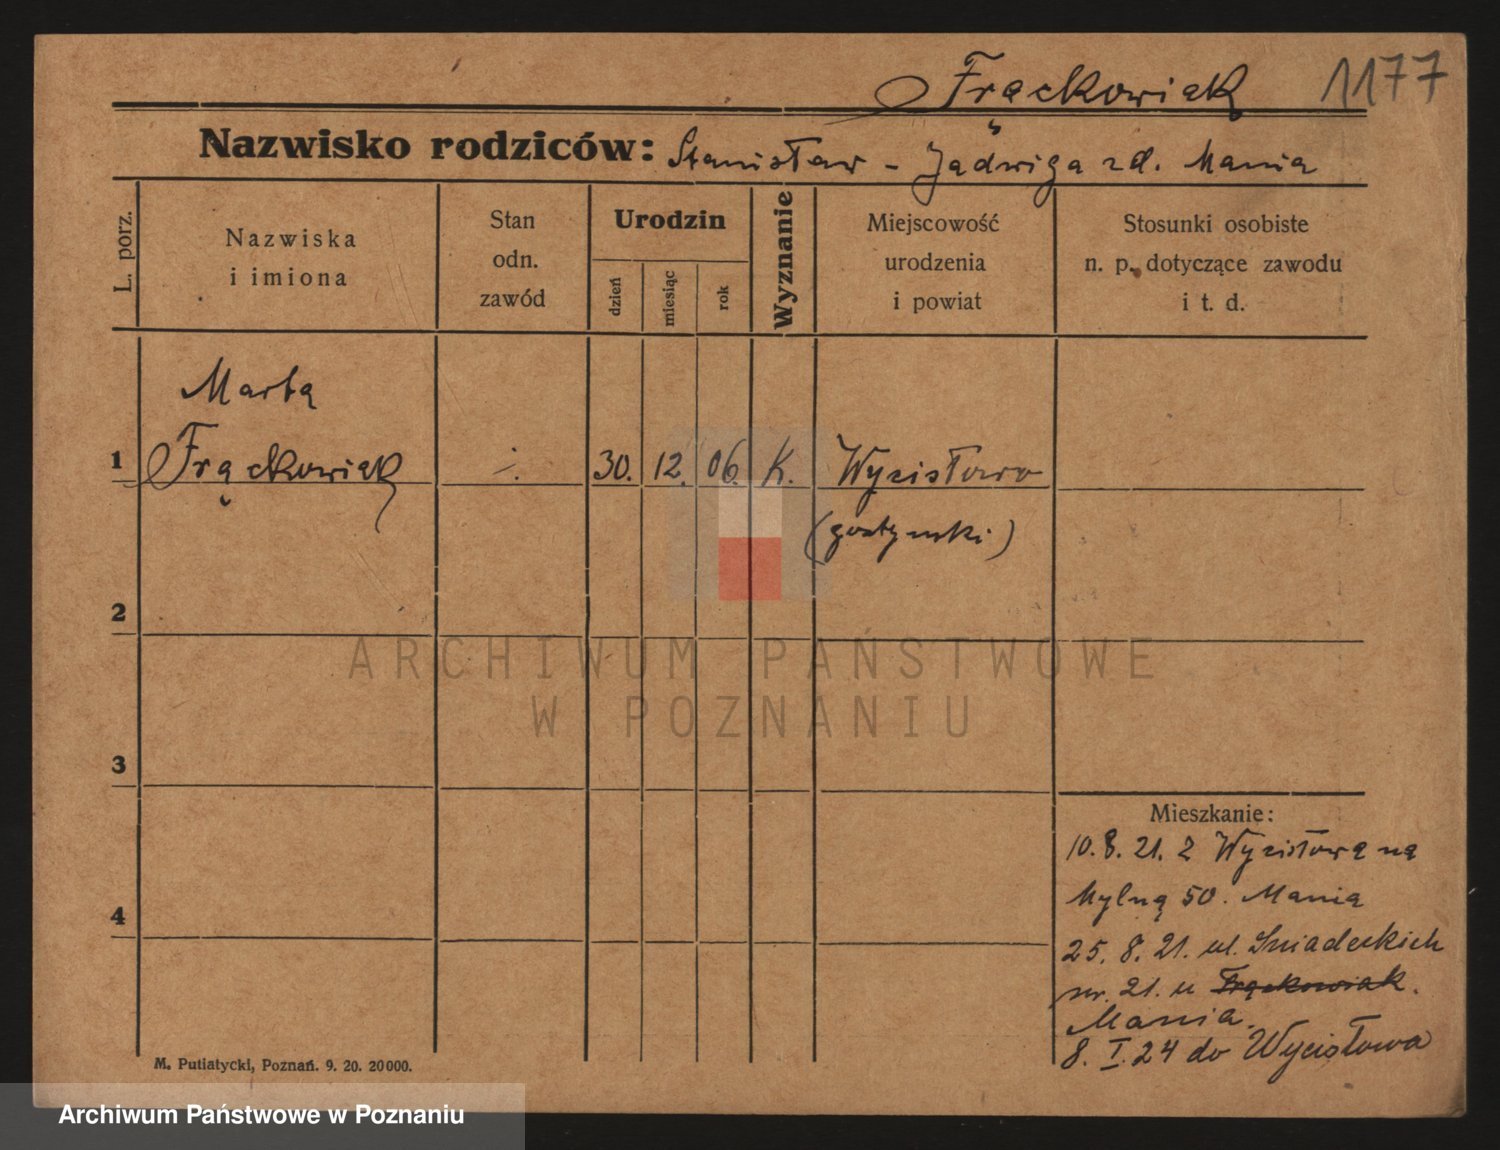 Frąckowiak 1177
Nazwisko rodziców: Stanisław - Jadwiga zd. Mania
L. porz.
Nazwiska
i imiona
Stan
odn.
zawód
Urodzin
dzień
miesiąc
rok
Wyznanie
Miejscowość
urodzenia
i powiat
Stosunki osobiste
n. p. dotyczące zawodu
i t. d.
Marta
1 Frąckowiak ·/. 30. 12. 06. K. Wycisłowo
(gostynski)
2
3
4
ARCHIWUM PAŃSTWOWE
W POZNANIU
Mieszkanie:
10. 8. 21. z Wycisłowa na
Mylną 50. Mania
25. 8. 21. ul. Sniadeckich
nr. 21. u Frąckowiak.
Mania.
8. I. 24 do Wycisłowa
M. Putiatycki, Poznań. 9. 20. 20000.
Archiwum Państwowe w Poznaniu